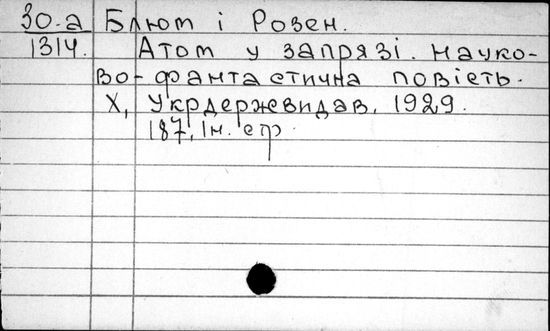 30-а Блют і Розен.
1314. Атом у запрязі. Науко-
во-фантастична повість.
Х, Укрдержевидав, 1929.
187, Ін. стр.